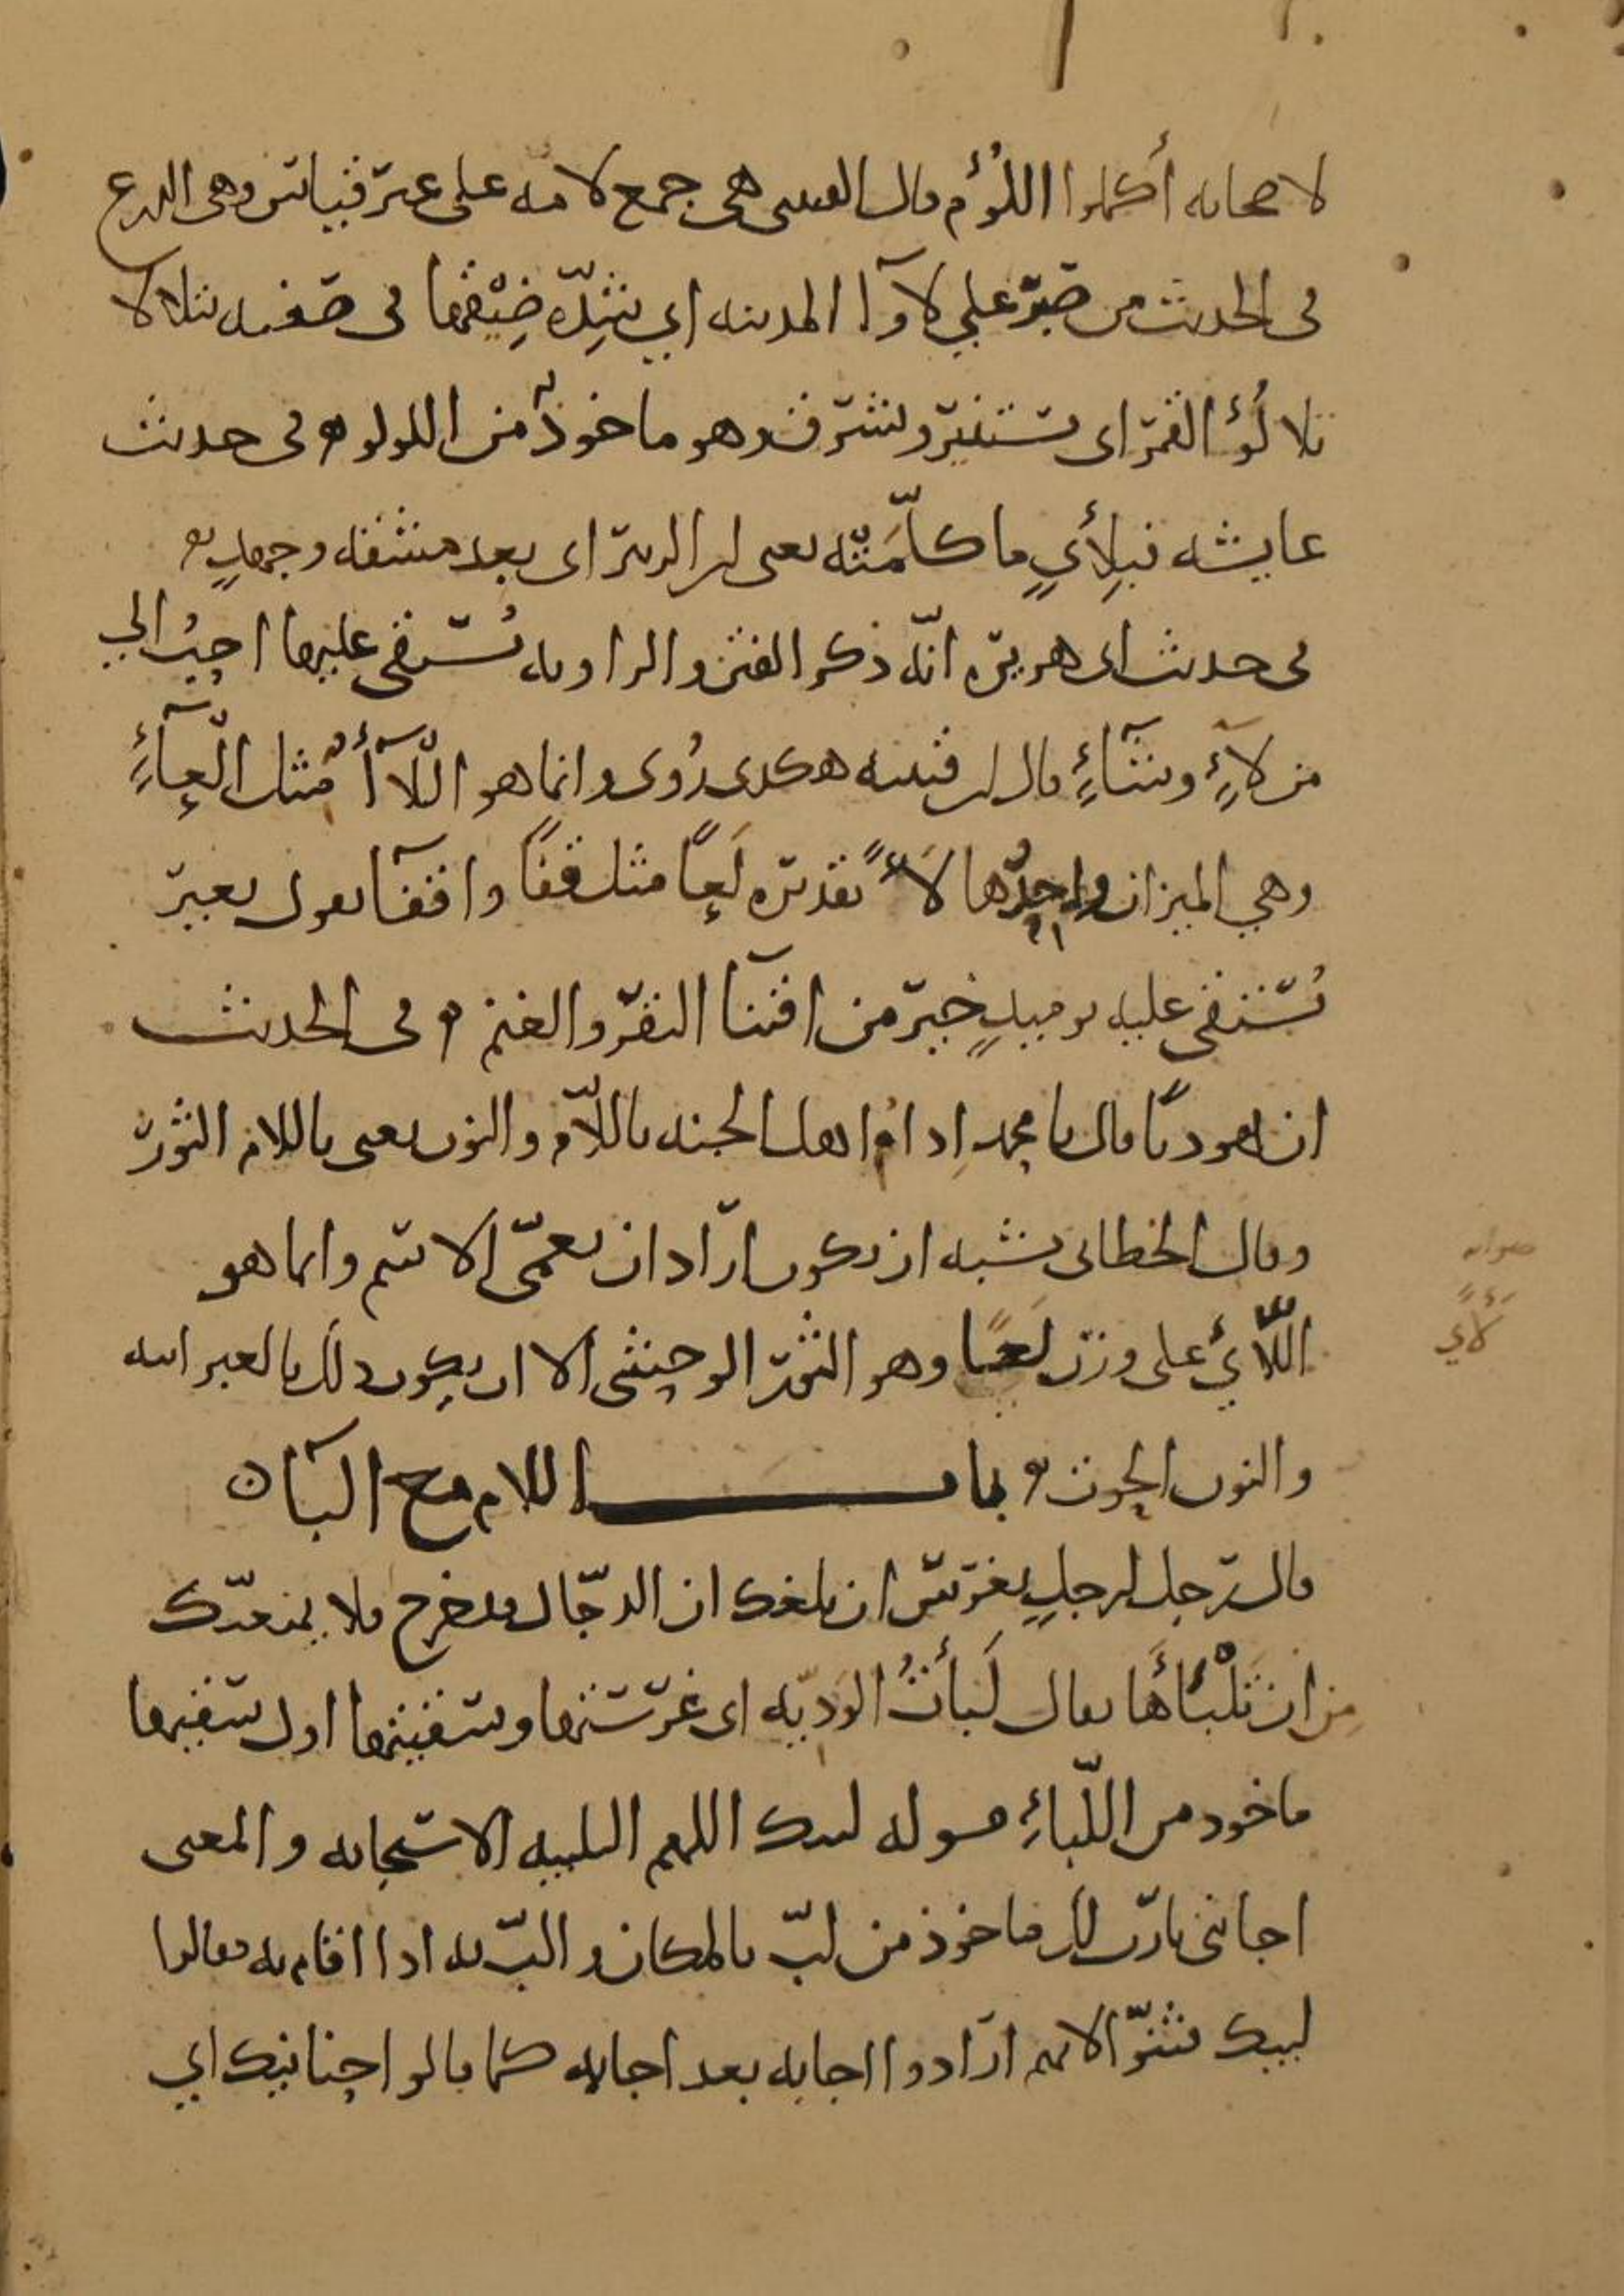 لاصحابه أكملوا اللُؤَم قال القتيبى هى جمع لامه على غير قياس وهى الدرع
فى الحديث من صبر على لاوآ المدينه اي شِدّه ضِيْقها فى صفته يتلالا
تلالُؤَ القمر اى يستنير ويشرق وهو ماخوذ من اللولو وفى حديث
عايشه فبِلأيٍ ما كلّمَتْه يعنى ابن الزبير اى بعد مشقه وجهدٍ
فى حديث ابى هريره انّه ذكر الفتن والراويه يُستقى عليها احبُ الي
من لآءٍ وشآءٍ قال ابن قتيبه هكذى رُوى وانما هو اللآأ مثل العاءِ
وهي الثيران واحِدُها لأً تقديره لَعاً مثل قفاً واقفآ يقول بعير
يُستقى عليه يوميذٍ خير من اقتنا البقر والغنم وفى الحديث
ان يهوديًا قال يا محمد ادام اهل الجنه باللاّم والنون يعنى باللام الثور
وقال الخطابى يشبه ان يكون اراد ان يعمّى الاسم وانما هو
اللّأيُ على وزن لَعًا وهو الثور الوحشى الا ان يكون ذلك بالعبرانيه
والنون الحوت باب اللام مع البآ
قال رجل لرجلٍ يغرس ان بلغك ان الدجّال قد خرج فلا يمنعنّك
مِن ان تَلْبَأَهَا يقال لَبَأتُ الوديّه اى غرستها وسقيتها اول سقيها
ماخوذ من اللّباءِ قوله لبيك اللهم التلبيه الاستجابه والمعنى
اجابتى يا ربّ لك ماخوذ من لبّ بالمكان والبّ به اذا اقام به فقالوا
لبيك فثنّوا لانهم ارادوا اجابه بعد اجابه كما قالوا حنانيك اي
صوابه
لأي